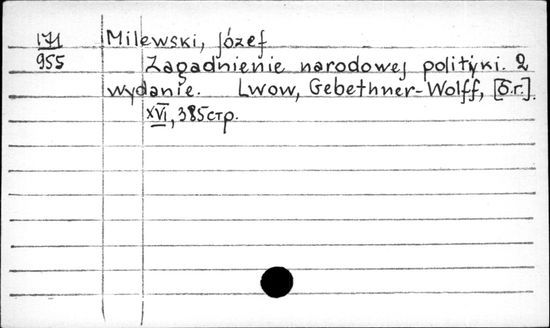 171
955
Milewski, Józef
Zagadnienie narodowej polityki. 2
wydanie. Lwow, Gebethner-Wolff, [б.г.].
XVI, 385стр.